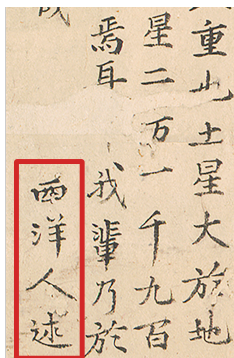 重此土星大於地
星二万一千九百
焉耳 我輩乃於
西洋人述